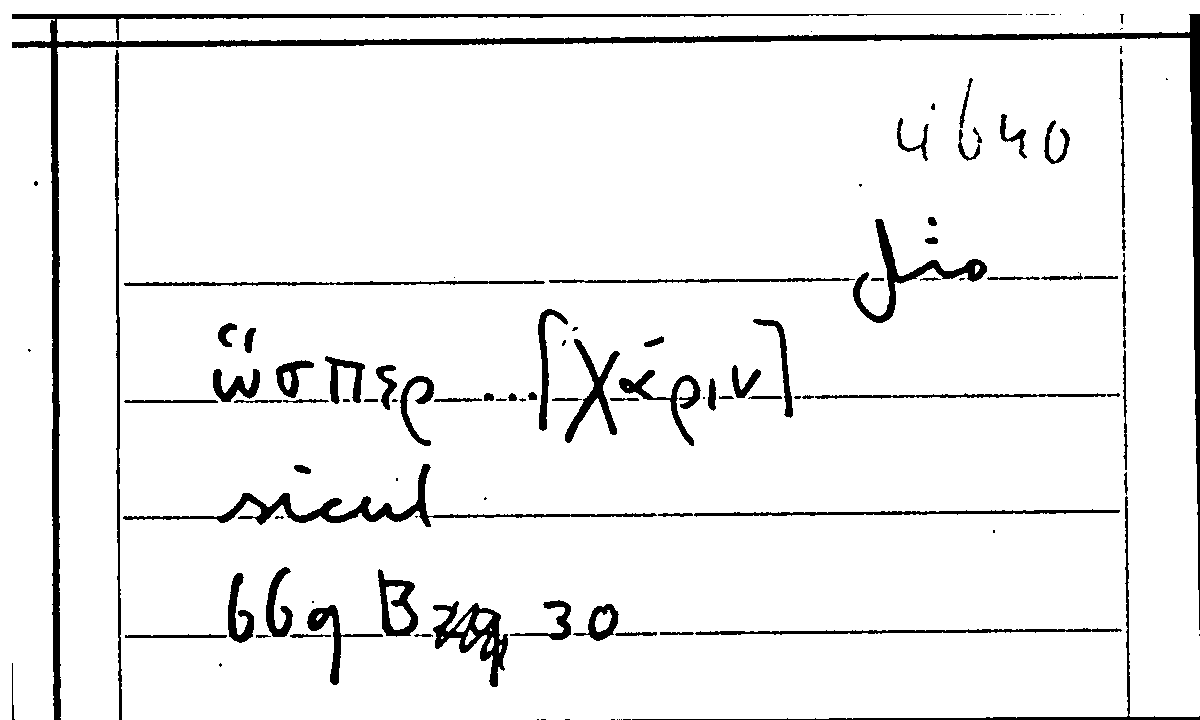 4640
dio
ὥσπερ ....[χάριν]
sicut
669 B 30